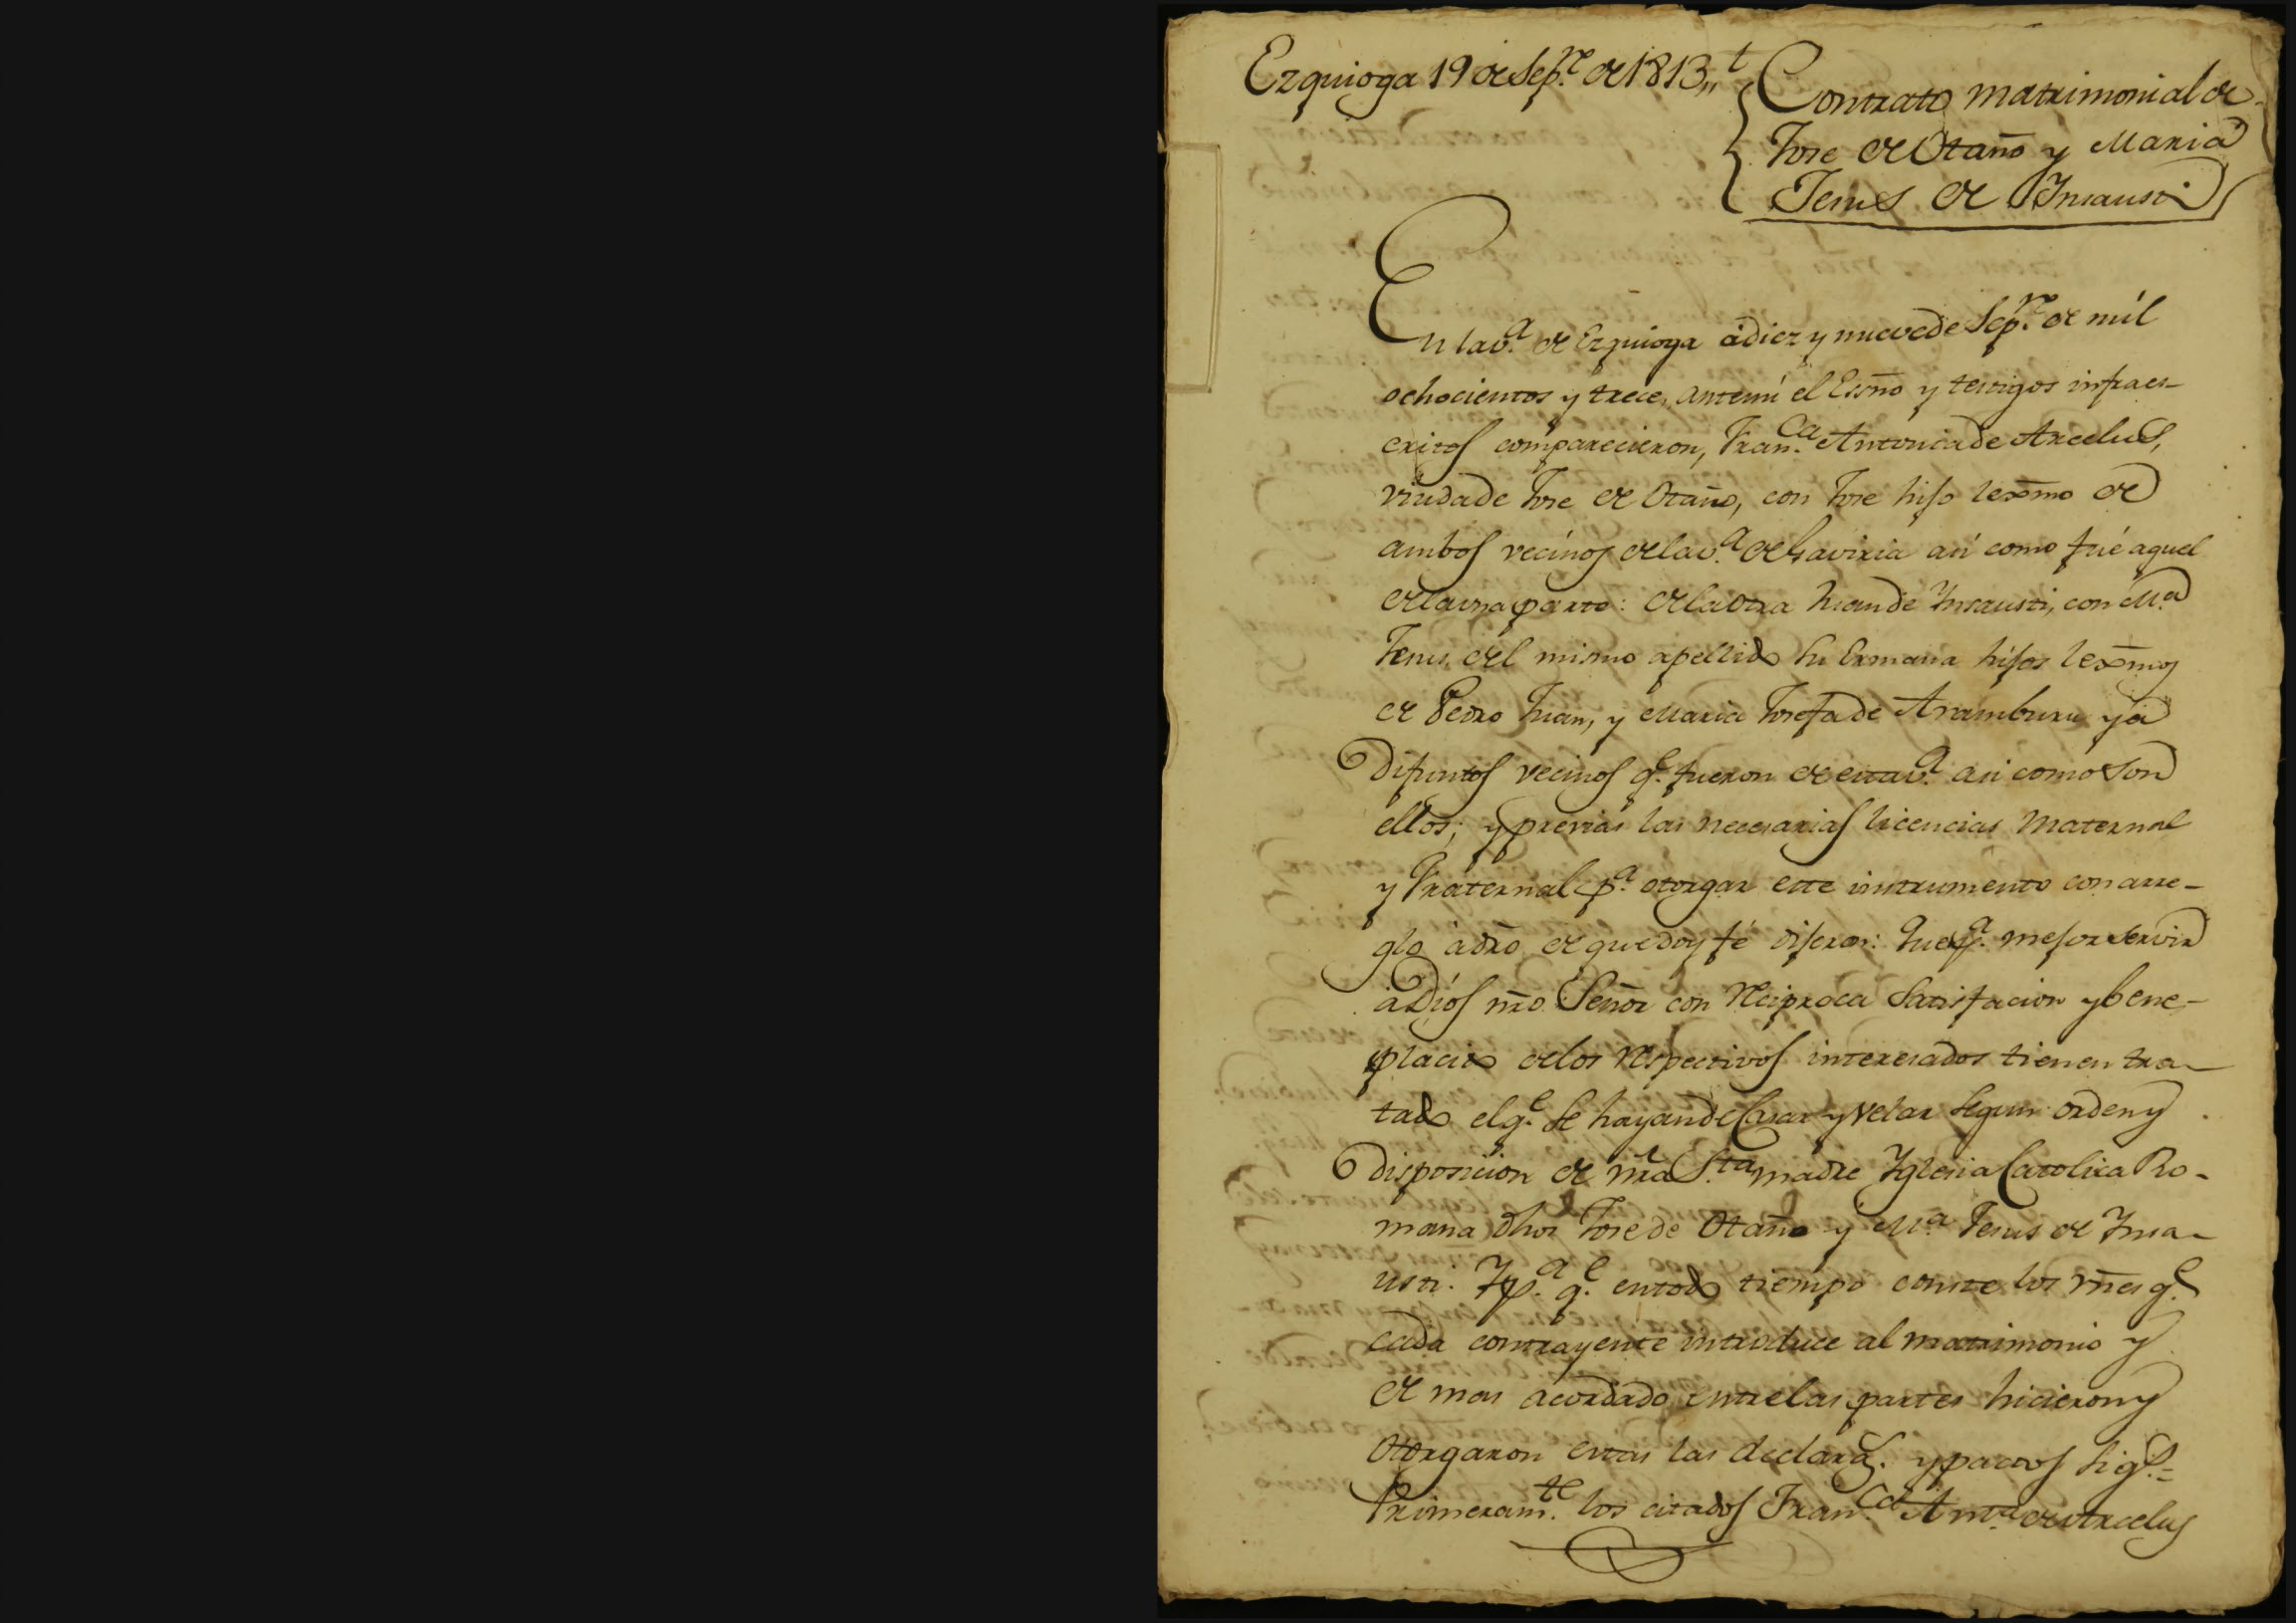 Ezquioga 19 de Sepre. de 1813,,
Contrato matrimonial de
Jose de Otaño y Maria
Jesus de Insausti
En la va. de Ezquioga á diez y nueve de Sepre. de mil
ochocientos y trece, antemi el Essno y testigos infraes-
critos comparecieron, Franca. Antonia de Arcelus,
viuda de Jose de Otaño, con Jose hijo lexmo de
ambos vecinos de la va. de Gaviria asi como fué aquel
de la una parte: de la otra Juan de Insausti, con Ma.
Jesus, del mismo apellido su Ermana hijos lexmos
de Pedro Juan, y Maria Josefa de Aramburu yá
difuntos vecinos qe. fueron de esta va. asi como son
ellos; y previas las necesarias licencias Maternal
y Fraternal pa. otorgar este instrumento con arre-
glo á dro de que doy fé dijeron: Que pa. mejor servir
á Dios nro Señor con reciproca satisfacion y bene-
placito de los respectivos interesados tienen tra-
tado el qe. se hayan de Casar y velar segun orden y
disposicion de nra Sta. madre Yglesia Catolica Ro-
mana dhos Jose de Otaño y Ma. Jesus de Insa-
usti. Y pa. qe. en todo tiempo conste los vnes qe.
cada contrayente introduce al matrimonio y
de mas acordado entre las partes hicieron y
otorgaron estas las declaras. y pactos sigs.=
Primeramte. los citados Franca. Anta. de Arcelus